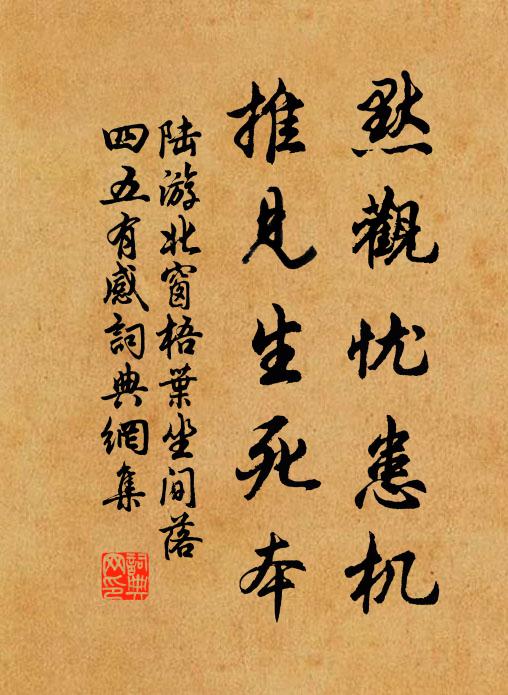 默觀忧患机
推見生死本
陆游北窗梧葉坐间落
四五有感詞典網集
詞典网印